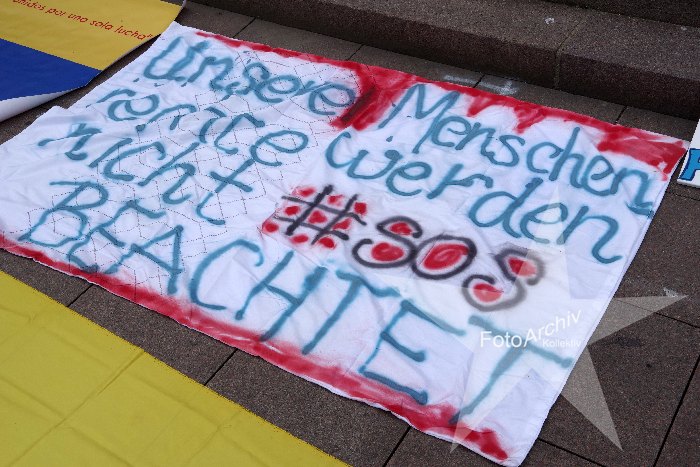 unidos por una sola lucha"
Unsere Menschen
rechte werden
nicht #SOS
BEACHTET
FotoArchiv
Kollektiv